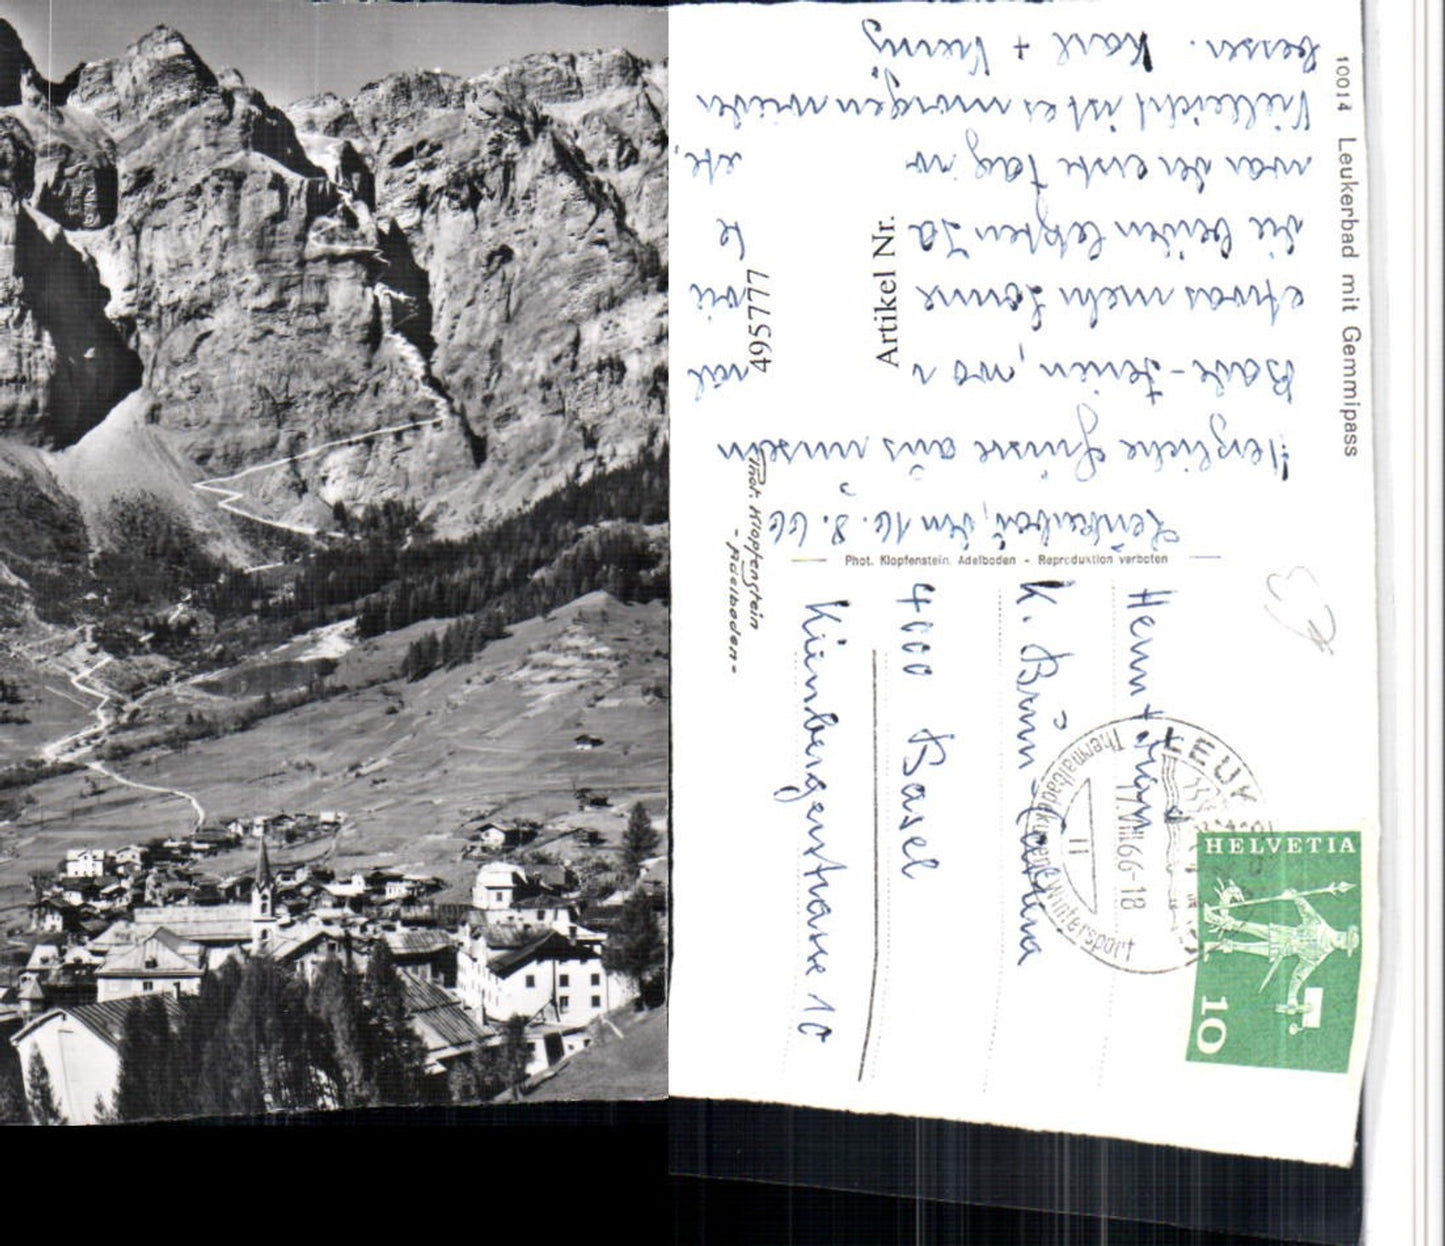 10014 Leukerbad mit Gemmipass
Leukerbad, den 16. 8. 66
Herzliche Grüsse aus unsern
Bade-Ferien, wo
etwas mehr Sonne wie
die beiden letzten Ja
war der erste Tag
Vielleicht ist es morgen wieder
besser. Karl +
Artikel Nr.
495777
Phot. Klopfenstein
- Adelboden -
Phot. Klopfenstein, Adelboden - Reproduktion verboten
Herrn + Frau
K. Brün
4000 Basel
Kürnbergerstrasse 10
LEUK
17.VIII.66-18
Thermalbadekuren
Wintersport
HELVETIA
10